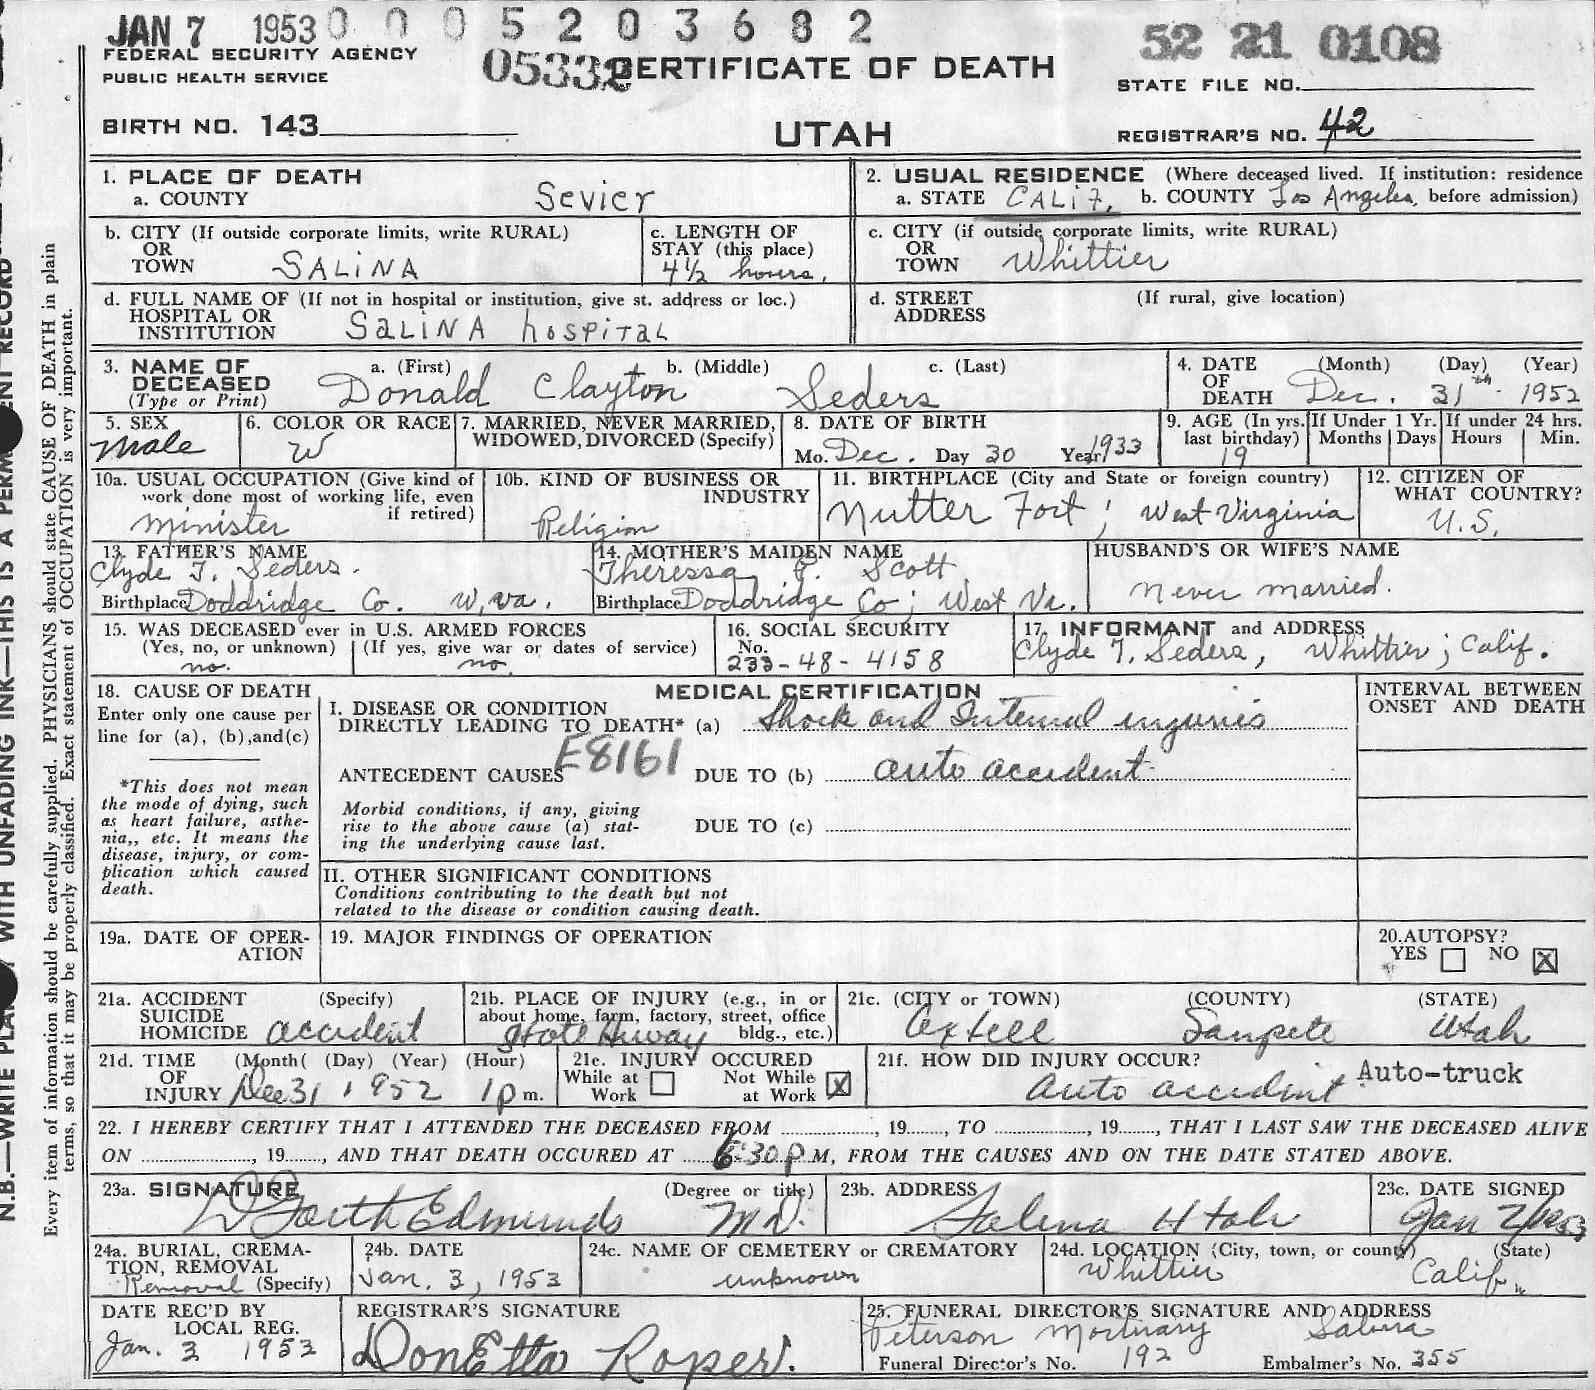 JAN 7 1953 0 0 0 5 2 0 3 6 8 2
52 21 0108
FEDERAL SECURITY AGENCY
PUBLIC HEALTH SERVICE
05332
CERTIFICATE OF DEATH
STATE FILE NO.
BIRTH NO. 143
UTAH
REGISTRAR'S NO. 42
1. PLACE OF DEATH
a. COUNTY Sevier
2. USUAL RESIDENCE (Where deceased lived. If institution: residence
a. STATE CALIF. b. COUNTY Los Angeles, before admission)
b. CITY (If outside corporate limits, write RURAL)
OR
TOWN SALINA
c. LENGTH OF
STAY (this place)
4½ hours.
c. CITY (if outside corporate limits, write RURAL)
OR
TOWN Whittier
d. FULL NAME OF (If not in hospital or institution, give st. address or loc.)
HOSPITAL OR
INSTITUTION SALINA hospital
d. STREET (If rural, give location)
ADDRESS
3. NAME OF a. (First) b. (Middle) c. (Last)
DECEASED
(Type or Print) Donald Clayton Seders
4. DATE (Month) (Day) (Year)
OF
DEATH Dec. 31th 1952
5. SEX
Male
6. COLOR OR RACE
W
7. MARRIED, NEVER MARRIED,
WIDOWED, DIVORCED (Specify)
8. DATE OF BIRTH
Mo. Dec. Day 30 Year 1933
9. AGE (In yrs.
last birthday)
19
If Under 1 Yr.
Months Days
If under 24 hrs.
Hours Min.
10a. USUAL OCCUPATION (Give kind of
work done most of working life, even
if retired)
Minister
10b. KIND OF BUSINESS OR
INDUSTRY
Religion
11. BIRTHPLACE (City and State or foreign country)
Nutter Fort, West Virginia
12. CITIZEN OF
WHAT COUNTRY?
U.S.
13. FATHER'S NAME
Clyde T. Seders.
Birthplace Doddridge Co. W.Va.
14. MOTHER'S MAIDEN NAME
Theressa Scott
Birthplace Doddridge Co; West Va.
HUSBAND'S OR WIFE'S NAME
Never married.
15. WAS DECEASED ever in U.S. ARMED FORCES
(Yes, no, or unknown) (If yes, give war or dates of service)
no. no
16. SOCIAL SECURITY
No.
233-48-4158
17. INFORMANT and ADDRESS
Clyde T. Seders, Whittier; Calif.
18. CAUSE OF DEATH
Enter only one cause per
line for (a), (b), and (c)
*This does not mean
the mode of dying, such
as heart failure, asthe-
nia,, etc. It means the
disease, injury, or com-
plication which caused
death.
MEDICAL CERTIFICATION
I. DISEASE OR CONDITION
DIRECTLY LEADING TO DEATH* (a) Shock and Internal injuries
E8161
ANTECEDENT CAUSES DUE TO (b) auto accident
Morbid conditions, if any, giving
rise to the above cause (a) stat-
ing the underlying cause last.
DUE TO (c)
II. OTHER SIGNIFICANT CONDITIONS
Conditions contributing to the death but not
related to the disease or condition causing death.
INTERVAL BETWEEN
ONSET AND DEATH
19a. DATE OF OPER-
ATION
19. MAJOR FINDINGS OF OPERATION
20. AUTOPSY?
YES NO X
21a. ACCIDENT (Specify)
SUICIDE
HOMICIDE accident
21b. PLACE OF INJURY (e.g., in or
about home, farm, factory, street, office
bldg., etc.)
State Hiway
21c. (CITY or TOWN) (COUNTY) (STATE)
Axtell Sanpete Utah
21d. TIME (Month) (Day) (Year) (Hour)
OF
INJURY Dec 31 1952 1 p m.
21e. INJURY OCCURED
While at Work Not While at Work X
21f. HOW DID INJURY OCCUR?
Auto accident Auto-truck
22. I HEREBY CERTIFY THAT I ATTENDED THE DECEASED FROM ............, 19......, TO ............, 19......, THAT I LAST SAW THE DECEASED ALIVE
ON ............, 19......, AND THAT DEATH OCCURED AT 6:30 P M, FROM THE CAUSES AND ON THE DATE STATED ABOVE.
23a. SIGNATURE (Degree or title)
Edmunds M.D.
23b. ADDRESS
Salina Utah
23c. DATE SIGNED
Jan 2/1953
24a. BURIAL, CREMA-
TION, REMOVAL
Removal (Specify)
24b. DATE
Jan. 3, 1953
24c. NAME OF CEMETERY or CREMATORY
unknown
24d. LOCATION (City, town, or county) (State)
Whittier Calif.
DATE REC'D BY
LOCAL REG.
Jan. 3 1953
REGISTRAR'S SIGNATURE
DonEtta Roper.
25. FUNERAL DIRECTOR'S SIGNATURE AND ADDRESS
Peterson Mortuary Salina
Funeral Director's No. 192 Embalmer's No. 355
Every item of information should be carefully supplied. PHYSICIANS should state CAUSE OF DEATH in plain
terms, so that it may be properly classified. Exact statement of OCCUPATION is very important.